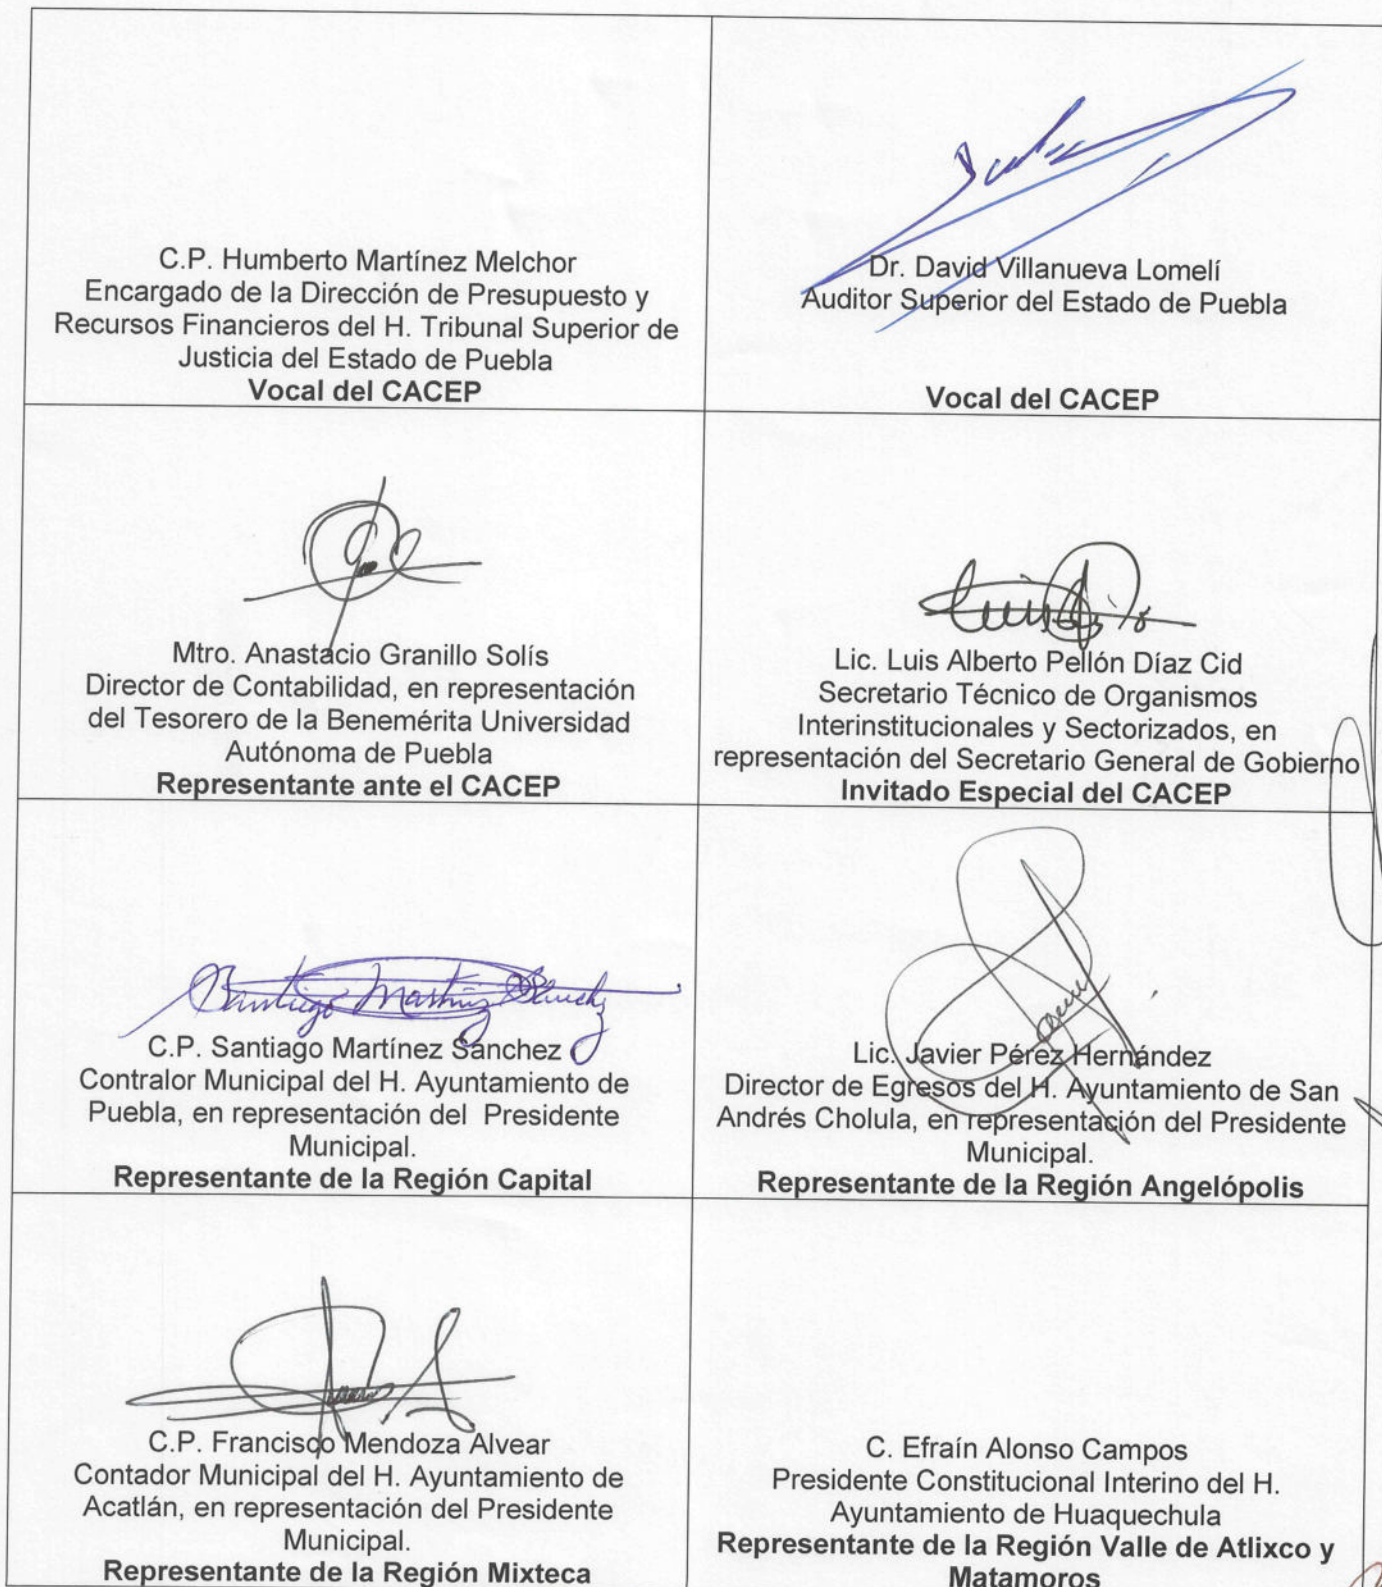 C.P. Humberto Martínez Melchor
Encargado de la Dirección de Presupuesto y
Recursos Financieros del H. Tribunal Superior de
Justicia del Estado de Puebla
Vocal del CACEP
Dr. David Villanueva Lomelí
Auditor Superior del Estado de Puebla
Vocal del CACEP
Mtro. Anastacio Granillo Solís
Director de Contabilidad, en representación
del Tesorero de la Benemérita Universidad
Autónoma de Puebla
Representante ante el CACEP
Lic. Luis Alberto Pellón Díaz Cid
Secretario Técnico de Organismos
Interinstitucionales y Sectorizados, en
representación del Secretario General de Gobierno
Invitado Especial del CACEP
Santiago Martínez Sánchez
C.P. Santiago Martínez Sánchez
Contralor Municipal del H. Ayuntamiento de
Puebla, en representación del Presidente
Municipal.
Representante de la Región Capital
Lic. Javier Pérez Hernández
Director de Egresos del H. Ayuntamiento de San
Andrés Cholula, en representación del Presidente
Municipal.
Representante de la Región Angelópolis
C.P. Francisco Mendoza Alvear
Contador Municipal del H. Ayuntamiento de
Acatlán, en representación del Presidente
Municipal.
Representante de la Región Mixteca
C. Efraín Alonso Campos
Presidente Constitucional Interino del H.
Ayuntamiento de Huaquechula
Representante de la Región Valle de Atlixco y
Matamoros